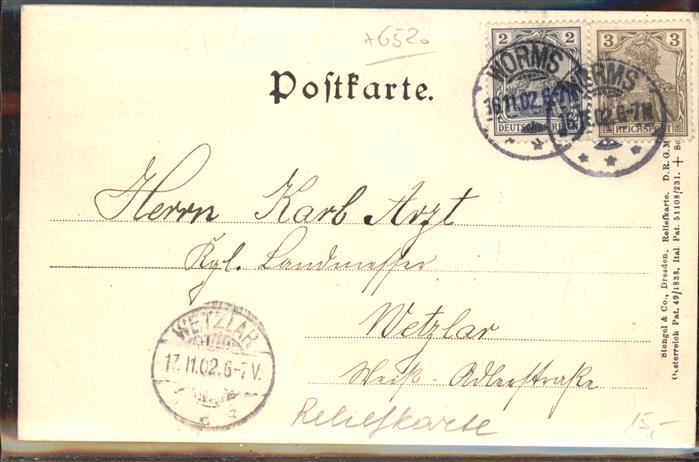 A652a
Postkarte.
2
DEUTSCHES REICH
3
REICHSPOST
WORMS
16.11.02.6-7N
WORMS
16.11.02.6-7N
Herrn Karl Arzt
Kgl. Landmesser
Wetzlar
Weiß-Adlerstraße
WETZLAR
17.11.02.6-7V.
Reliefkarte
15,-
Stengel & Co., Dresden, Reliefkarte. D.R.G.M.
Österreich Pat. 49/1838. Ital Pat. 51108/231.